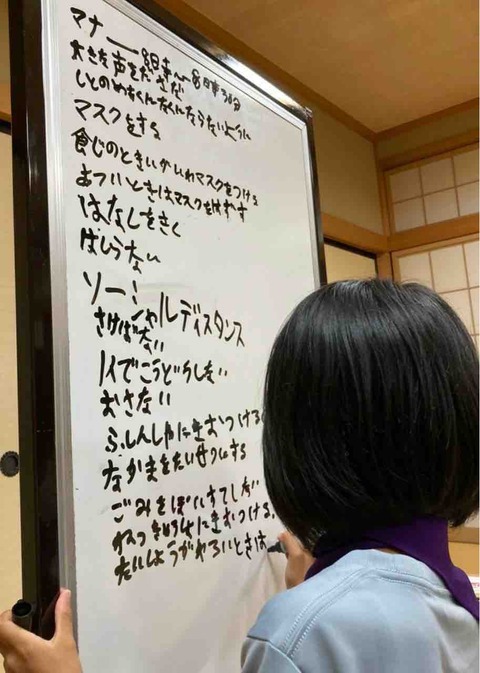 マナー 8時～8時30分
大きな声をださだ
ひとのめいわくにならないように
マスクをする
食じのときいがいわマスクをつける
あついときはマスクをはずす
はなしをきく
はしらない
ソーシャルディスタンス
さけばない
1人でこうどうしない
おさない
ふしんしゃにきおつける
なかまをたいせつにする
ごみをぽいすてしない
ねっちゅうしょうにきおつける。
たいしょうがわるいときは